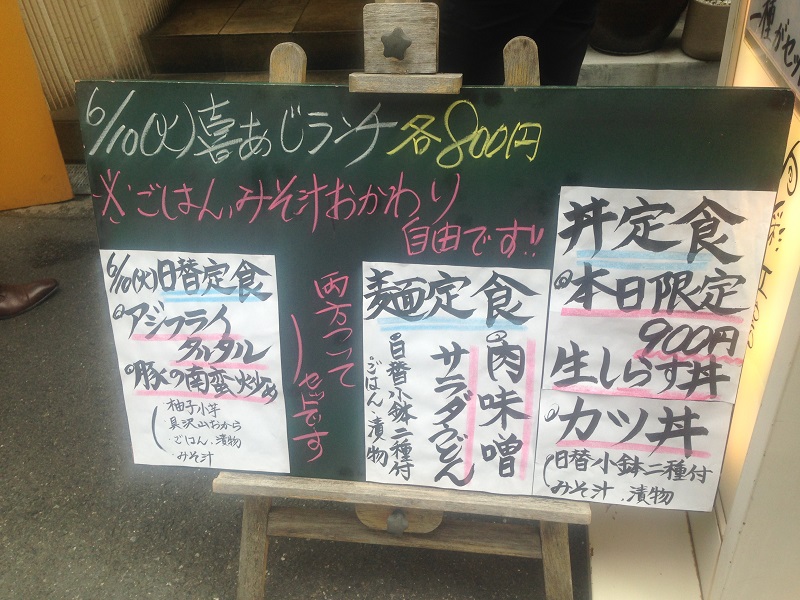 6/10(火)喜あじランチ各800円
※・ごはん、みそ汁おかわり
自由です!!
6/10(火)日替定食
アジフライ
タルタル
豚の南蛮炒め
柚子小芋
具沢山おから
・ごはん・漬物
・みそ汁
両方ついて
セットです
麺定食
肉味噌
サラダうどん
日替小鉢二種付
・ごはん・漬物
丼定食
本日限定
900円
生しらす丼
カツ丼
日替小鉢二種付
みそ汁・漬物